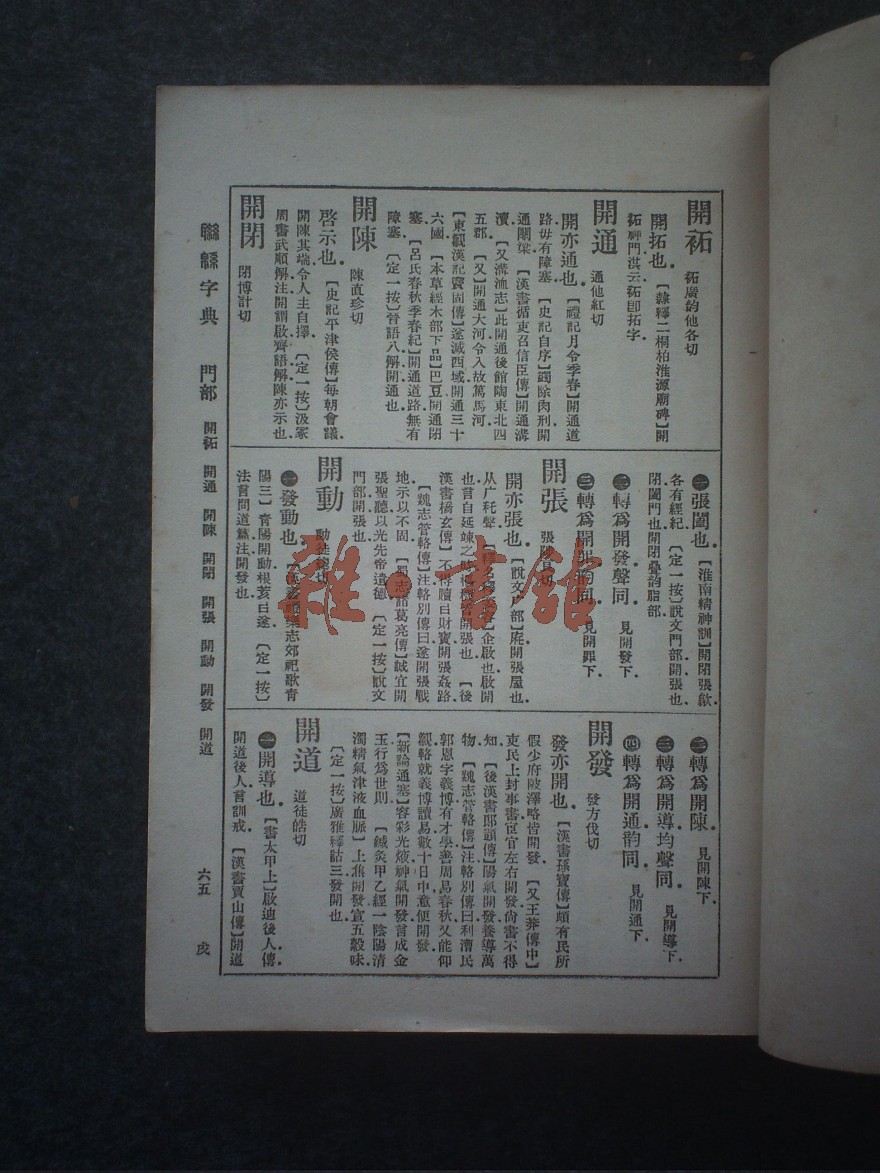 開袥
袥廣韵他各切
開拓也
【隸釋二桐柏淮源廟碑】開
袥神門洪云袥卽拓字
開通
通他紅切
開亦通也
【禮記月令季春】開通道
路毋有障塞
【史記自序】蠲除肉刑開
通關梁
【漢書循吏召信臣傳】開通溝
瀆
【又溝洫志】此開通後館陶東北四
五郡
【又】開通大河令入故篤馬河
【東觀漢記竇固傳】遂滅西域開通三十
六國
【本草經木部下品】巴豆開通閉
塞
【呂氏春秋季春紀】開通道路無有
障塞
【定一按】晉語八解開通也
開陳
陳直珍切
啓示也
【史記平津侯傳】每朝會議
開陳其端令人主自擇
【定一按】汲冢
周書武順解注開謂啟齊語解陳亦示也
開閉
閉博計切
㊀張闔也
【淮南精神訓】開閉張歙
各有經紀
【定一按】說文門部開張也
閉闔門也開閉疊韵脂部
㊁轉爲開發聲同
見開發下
㊂轉爲
韵同
開張
開亦張也
【說文广部】㡿開張屋也
从广秅聲
企啟也啟開
也言自延竦之時
皆開張也
【後
漢書橋玄傳】不得贖曰財寶開張姦路
【魏志管輅別傳】注輅別傳曰遂開張戰
地示以不固
【蜀志諸葛亮傳】誠宜開
張聖聽以光先帝遺德
【定一按】說文
門部開張也
開動
㊀發動也
樂志郊祀歌青
陽三】青陽開動根荄曰遂
【定一按】
法言問道篇注開發也
㊁轉爲開陳
見開陳下
㊂轉爲開導均聲同
見開導下
㊃轉爲開通韵同
見開通下
開發
發方伐切
發亦開也
【漢書孫寶傳】頗有民所
假少府陂澤略皆開發
【又王莽傳中】
吏民上封事書宦官左右開發尙書不得
知
【後漢書郎顗傳】陽氣開發養導萬
物
【魏志管輅傳】注輅別傳曰利漕民
郭恩字義博有才學善周易春秋又能仰
觀輅就義博讀易數十日中意便開發
【新論通塞】容彩光煥神氣開發言成金
玉行爲世則
【鍼灸甲乙經一陰陽清
濁精氣津液血脈】上焦開發宣五穀味
【定一按】廣雅釋詁三發開也
開道
道徒皓切
㊀開導也
【書太甲上】啟迪後人傳
開道後人言訓戒
【漢書賈山傳】開道
聯緜字典
門部
開袥 開通 開陳 開閉 開張 開動 開發 開道
六五
戌
雜 書館